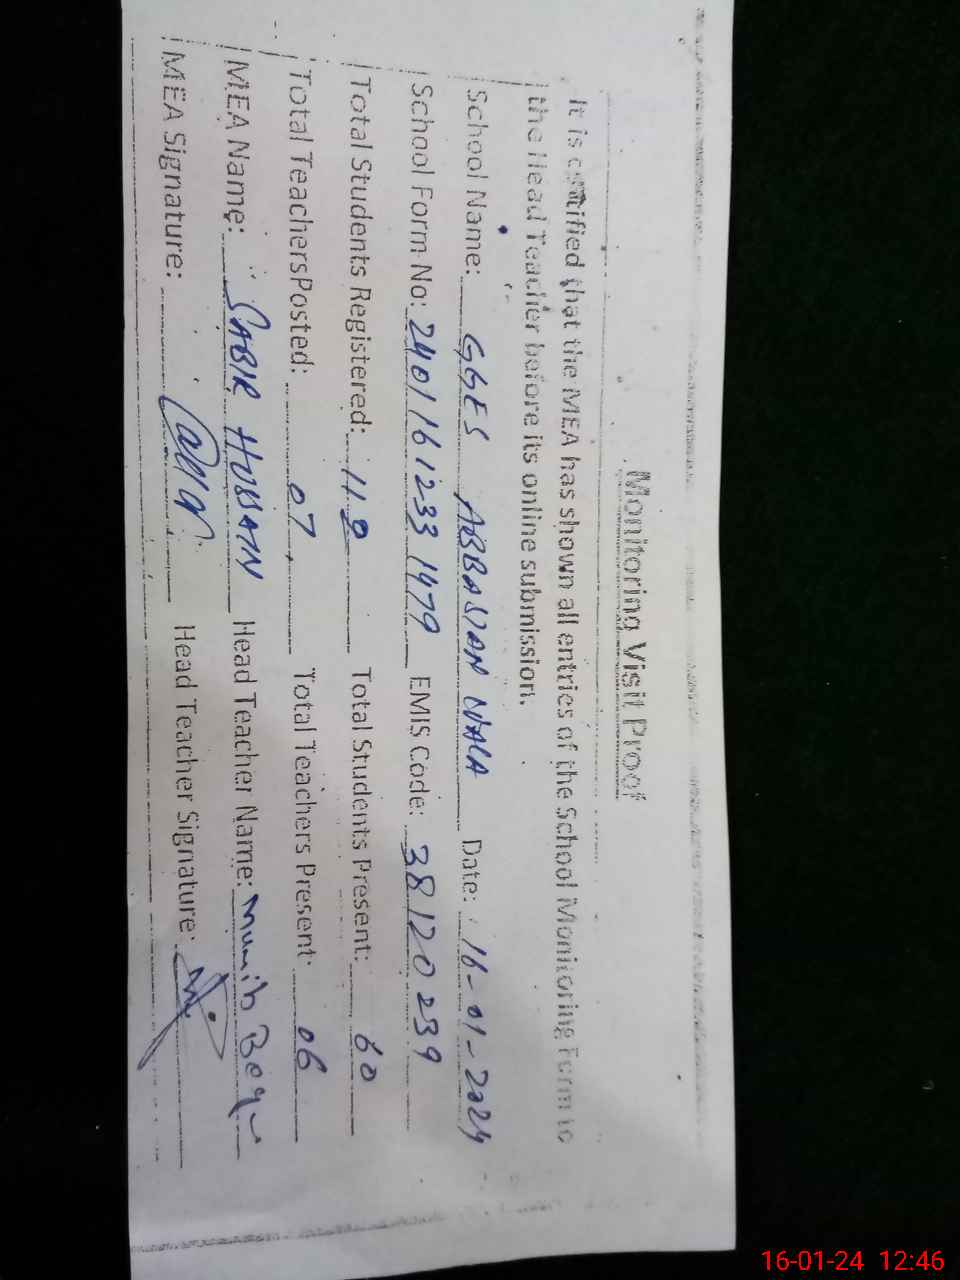 Monitoring Visit Proof
It is certified that the MEA has shown all entries of the School Monitoring Form to
the Head Teacher before its online submission.
School Name: GGES ABBASIAN WALA Date: 16-01-2024
School Form No: 2401161233 1479 EMIS Code: 38120239
Total Students Registered: 110 Total Students Present: 60
Total TeachersPosted: 07 Total Teachers Present: 06
MEA Name: SABIR HUSSAIN Head Teacher Name: Munib
MEA Signature: Head Teacher Signature:
16-01-24 12:46